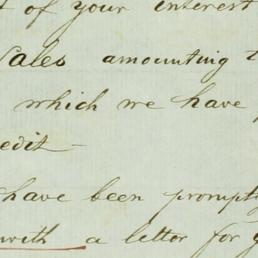 of your interest
Sales amounting t
which we have
edit —
have been promptly
with a letter for y